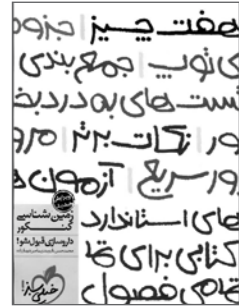 هفت چیز | جزوه
ی توپ | جمع بندی
تست های به درد بخ
ور | نکات برتر | مرو
ر سریع | آزمون ه
های استاندارد
کتابی برای تما
تمامی فصول
زمین شناسی
کنکور
داروسازی قبول شو!
خیلی سبز